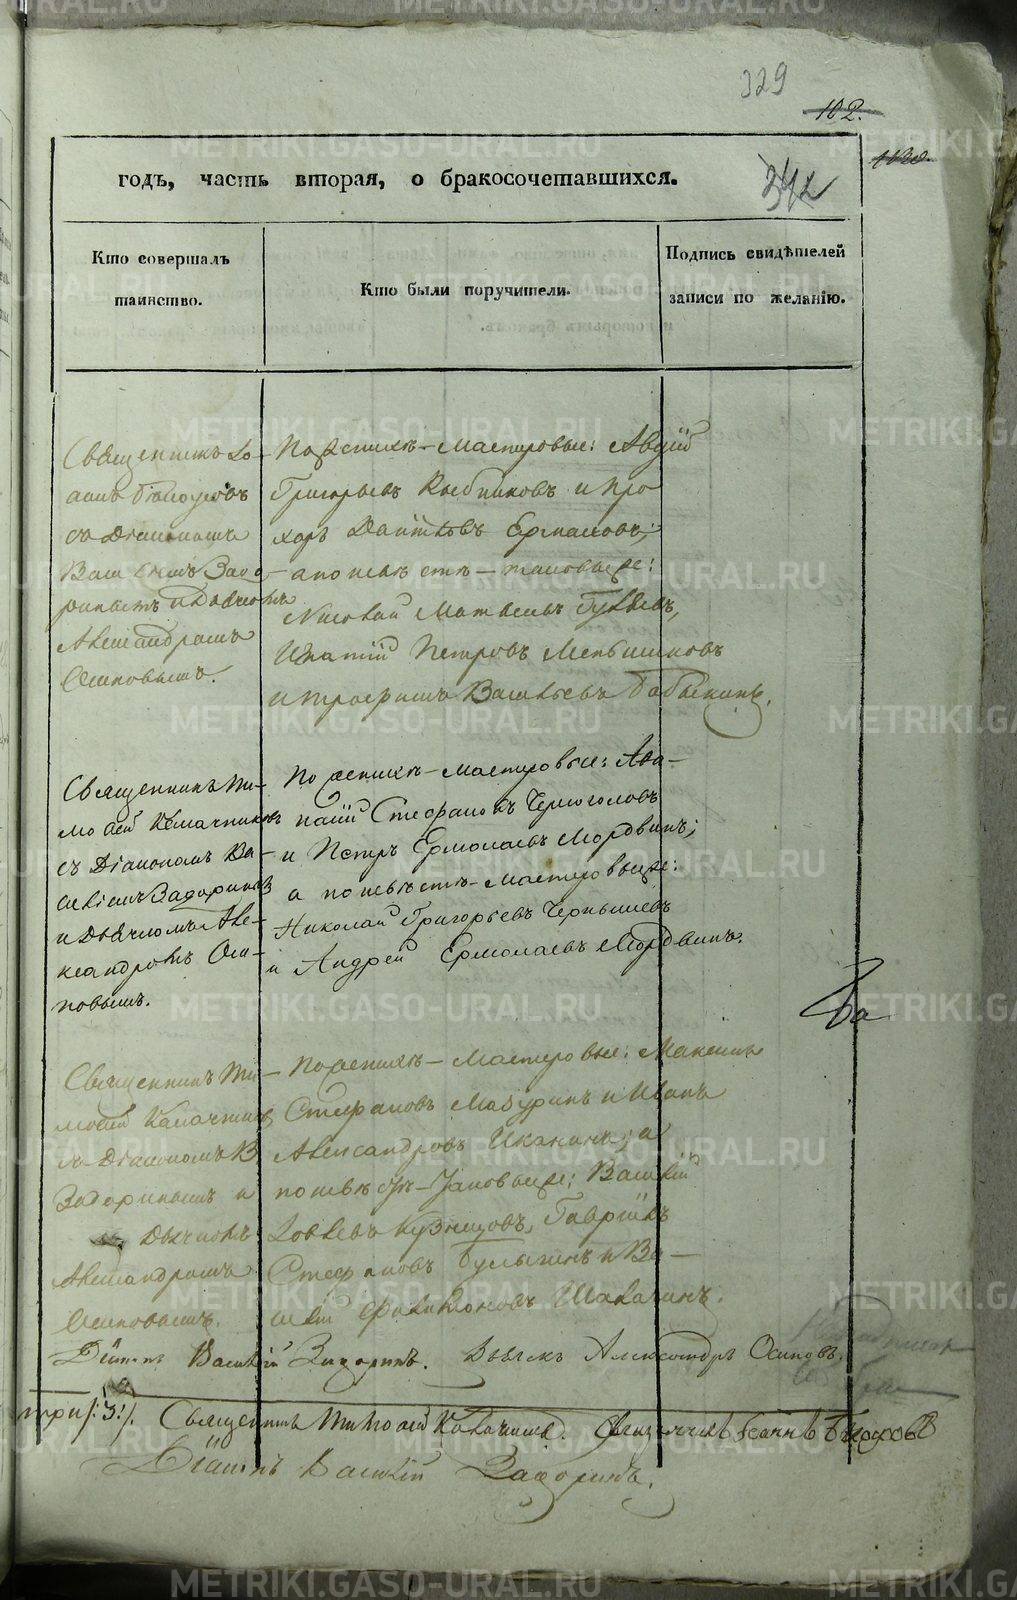 329
102.
годъ, часть вторая, о бракосочетавшихся.
342
Кто совершалъ
таинство.
Кто были поручители.
Подпись свидѣтелей
записи по желанію.
Священникъ Іо-
аннъ Бѣлоусовъ
съ Діакономъ
Василіемъ Задо-
ринымъ и Дьячкомъ
Александромъ
Осиповымъ.
По женихѣ – мастеровые: Авдій
Григорьевъ и Про
хоръ Ермаковъ;
а по невѣстѣ – таковыеже:
Николай Матвеевъ
Игнатій Петровъ Меньшиковъ
и Трофимъ Васильевъ Бабыкинъ.
Священникъ Ти-
моѳей Калачниковъ
съ Діакономъ Ва-
силіемъ Задоринымъ
и Дьячкомъ Але-
ксандромъ Оси-
повымъ.
По женихѣ – мастеровые: Ана-
ній Стефановъ Черноголовъ
и Петръ Ермолаевъ Мордвинъ;
а по невѣстѣ – мастеровыеже:
Николай Григорьевъ Чернышевъ
и Андрей Ермолаевъ Мордвинъ.
Священникъ Ти-
моѳей Калачниковъ
съ Діакономъ В
Задоринымъ и
Дьячкомъ
Александромъ
Осиповымъ.
По женихѣ – мастеровые: Максимъ
Стефановъ Мазуринъ и Иванъ
Александровъ Иканинъ; а
по невѣстѣ – таковыеже: Василій
Іовлевъ Кузнецовъ, Гавріилъ
Стефановъ Булыгинъ и Ва-
силій Шалагинъ.
Діаконъ Василій Задоринъ. Дьячекъ Александръ Осиповъ.
три /:3:/. Священникъ Тимоѳей Калачниковъ. Священникъ Іоаннъ Бѣлоусовъ
Діаконъ Василій Задоринъ.
METRIKI.GASO-URAL.RU